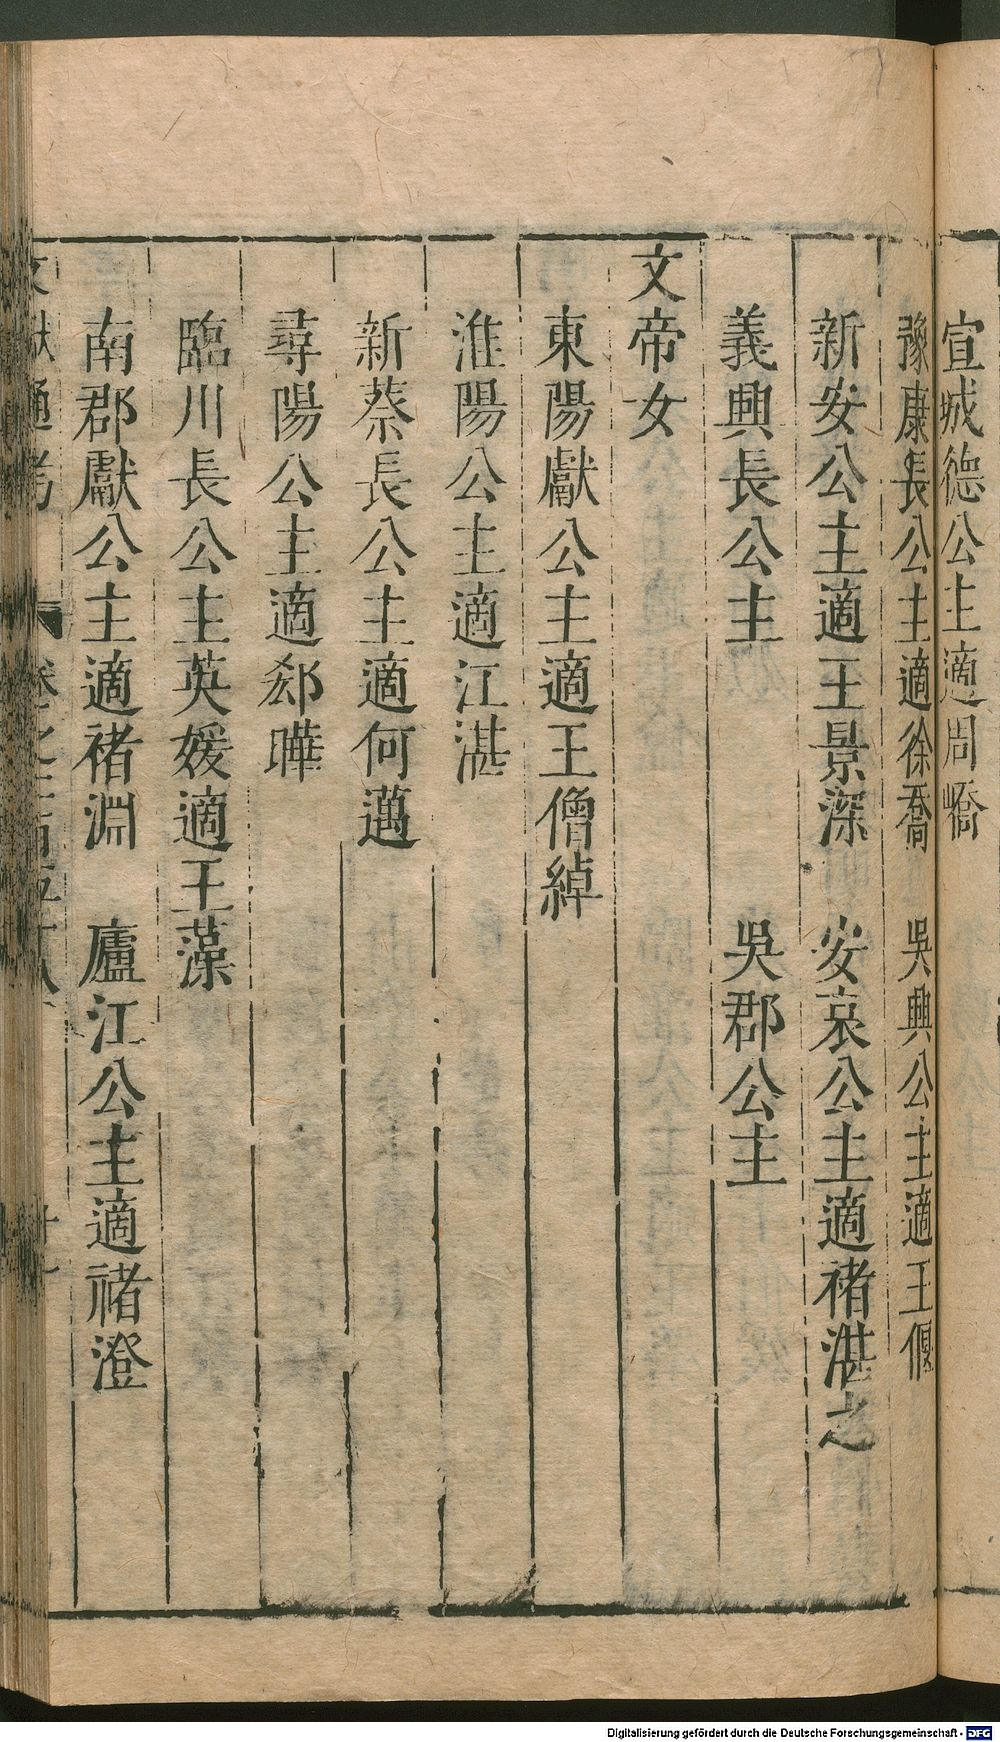 宣城德公主適周嶠
豫康長公主適徐喬　吳興公主適王偃
新安公主適王景深　安哀公主適褚湛之
義興長公主　吳郡公主
文帝女
東陽獻公主適王僧綽
淮陽公主適江湛
新蔡長公主適何邁
尋陽公主適郄曄
臨川長公主英媛適王藻
南郡獻公主適褚淵　廬江公主適褚澄
文獻通考　卷之二百五十八　十一
Digitalisierung gefördert durch die Deutsche Forschungsgemeinschaft - DFG